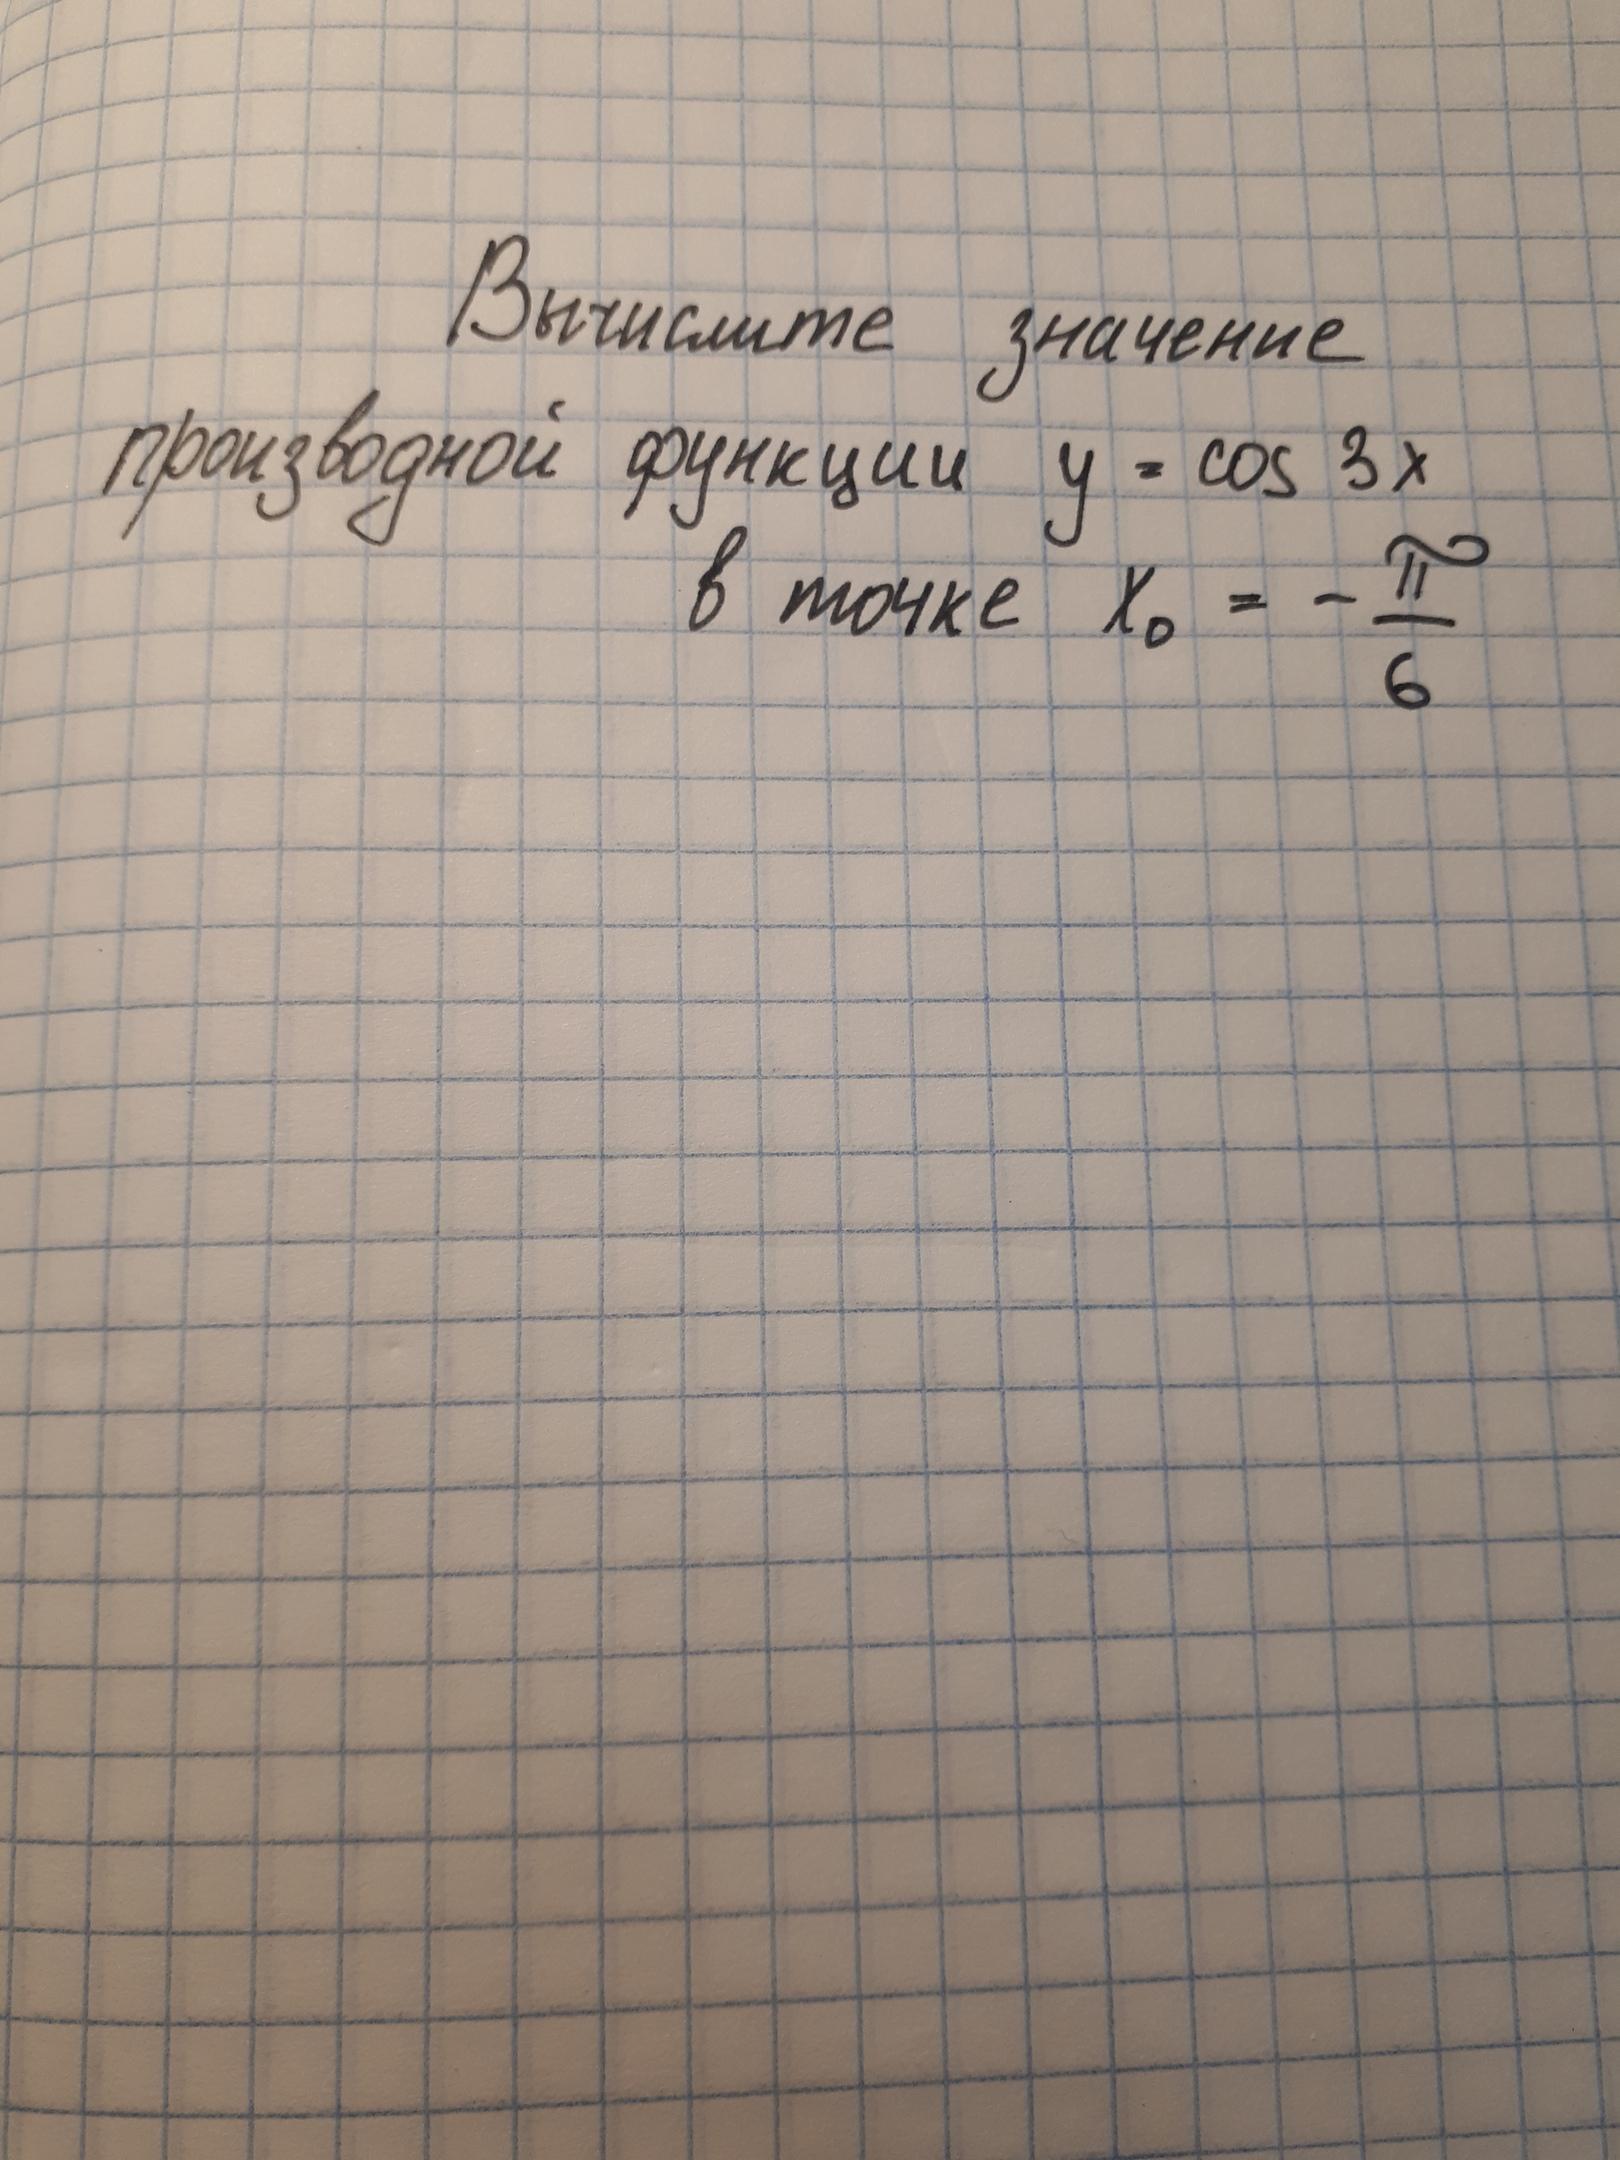 Вычислите значение
производной функции y = cos 3x
в точке x₀ = -π/6